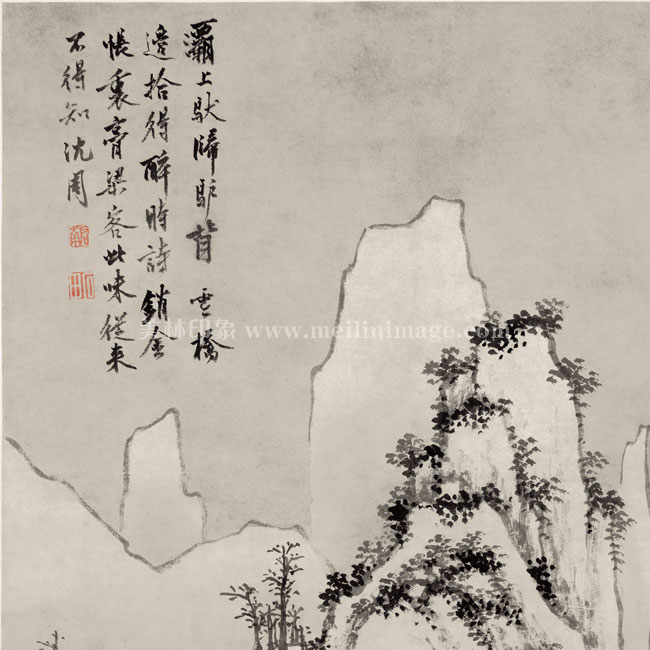 灞上馱歸驢背雪橋
邊拾得醉時詩銷金
帳裏膏粱客此味從來
不得知沈周
美林印象 www.meilinimage.com